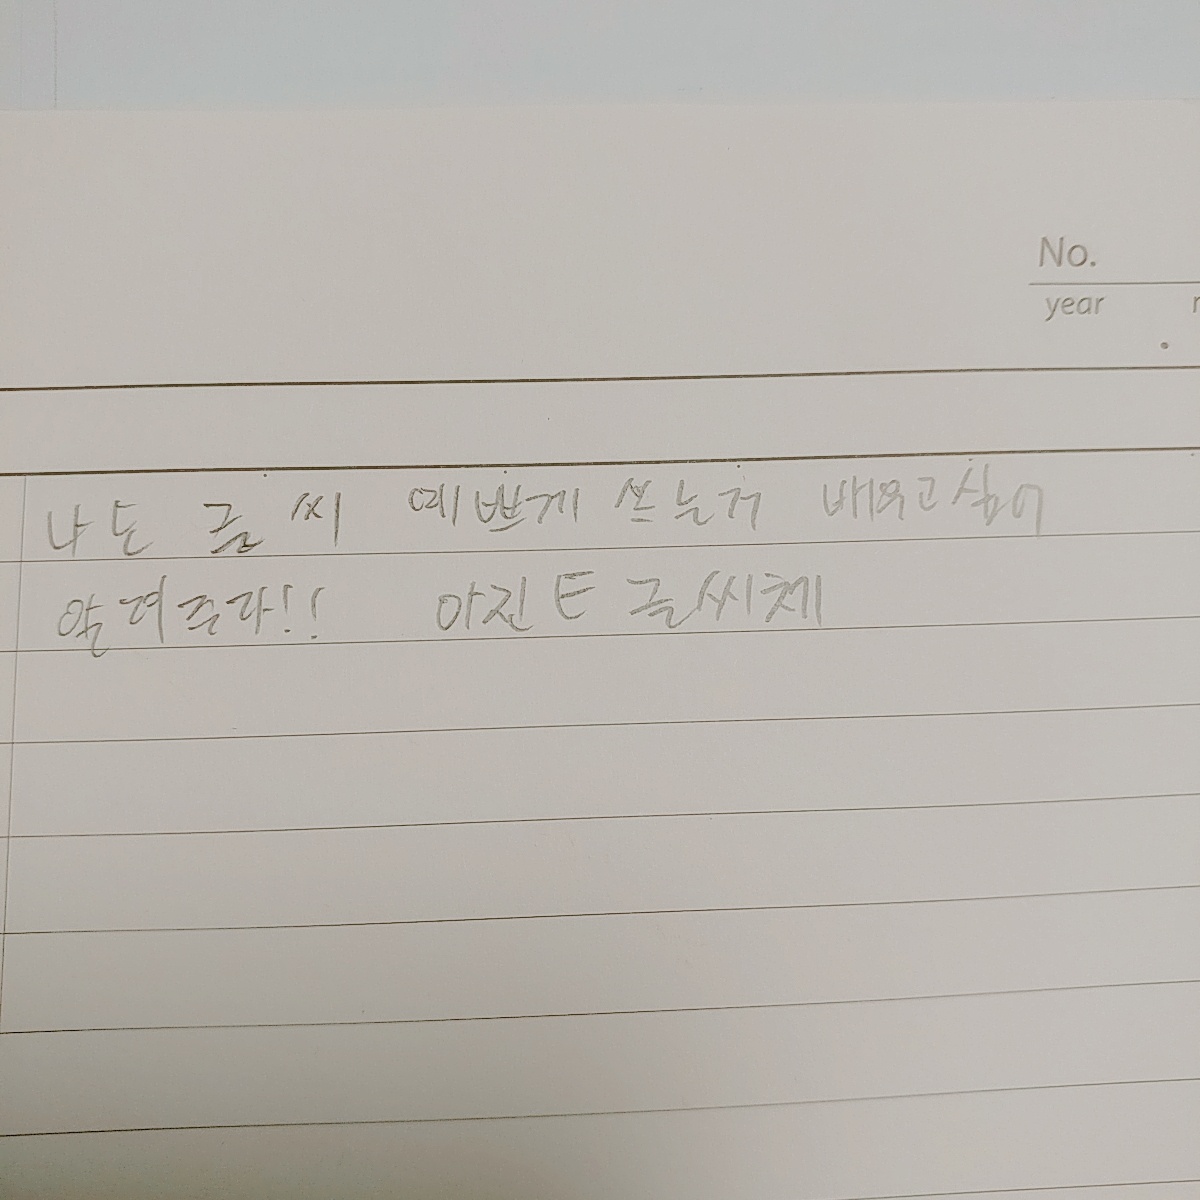 No.
year
나도 글씨 예쁘게 쓰는거 배우고싶어
알려주라!! 아진 E 글씨체